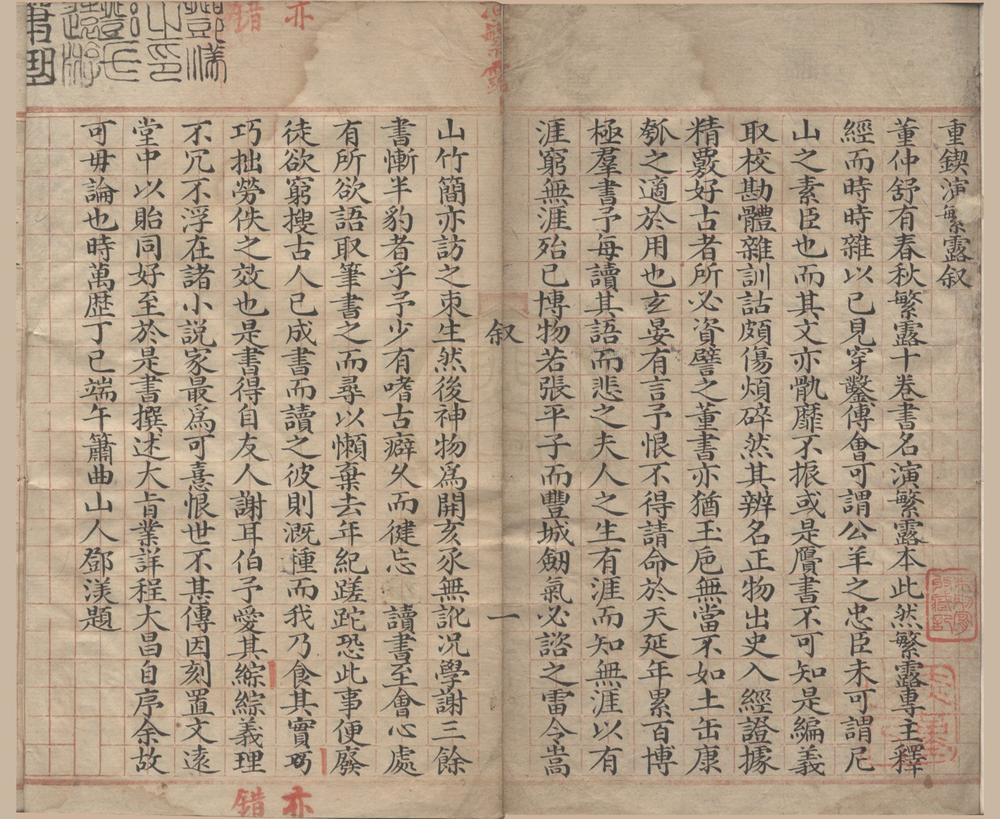 重鍥演繁露叙
董仲舒有春秋繁露十卷書名演繁露本此然繁露專主釋
經而時時雜以已見穿鑿傅會可謂公羊之忠臣未可謂尼
山之素臣也而其文亦骫靡不振或是贗書不可知是編義
取校勘體雜訓詁頗傷煩碎然其辨名正物出史入經證據
精覈好古者所必資譬之董書亦猶玉巵無當不如土缶康
瓠之適於用也玄晏有言予恨不得請命於天延年累百博
極羣書予每讀其語而悲之夫人之生有涯而知無涯以有
涯窮無涯殆已博物若張平子而豐城劒氣必諮之雷令嵩
叙
一
山竹簡亦訪之束生然後神物爲開亥豕無訛况學謝三餘
書慚半豹者乎予少有嗜古癖久而健忘 讀書至會心處
有所欲語取筆書之而尋以懶棄去年紀蹉跎恐此事便廢
徒欲窮搜古人已成書而讀之彼則溉種而我乃食其實巧
巧拙勞佚之效也是書得自友人謝耳伯予愛其綜綜義理
不冗不浮在諸小説家最爲可憙恨世不甚傳因刻置文遠
堂中以貽同好至於是書撰述大旨業詳程大昌自序余故
可毋論也時萬歷丁巳端午簫曲山人鄧渼題
亦
錯
亦
錯